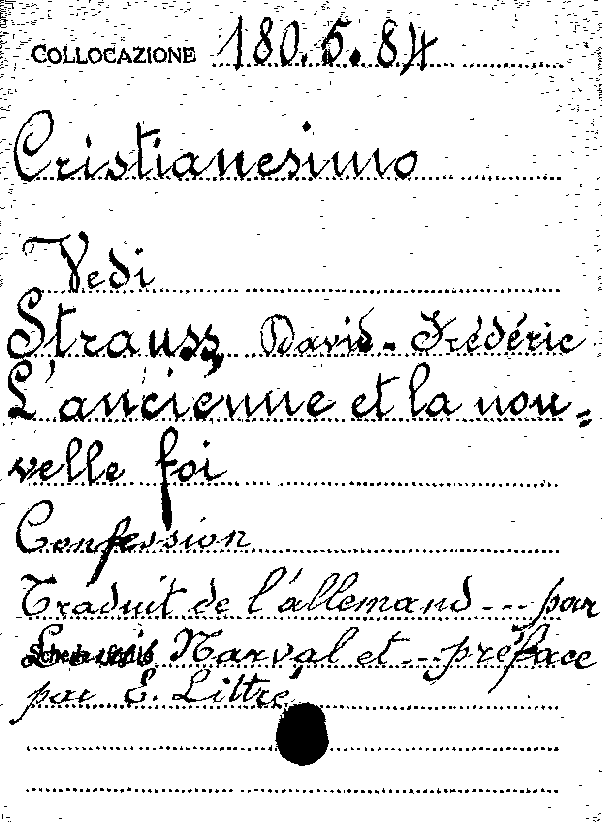 COLLOCAZIONE 180.5.84
Cristianesimo
Vedi
Strauss, David-Frédéric
L'ancienne et la nou=
velle foi
Confession
Traduit de l'allemand --- par
Louis Narval et --- préface
par E. Littré